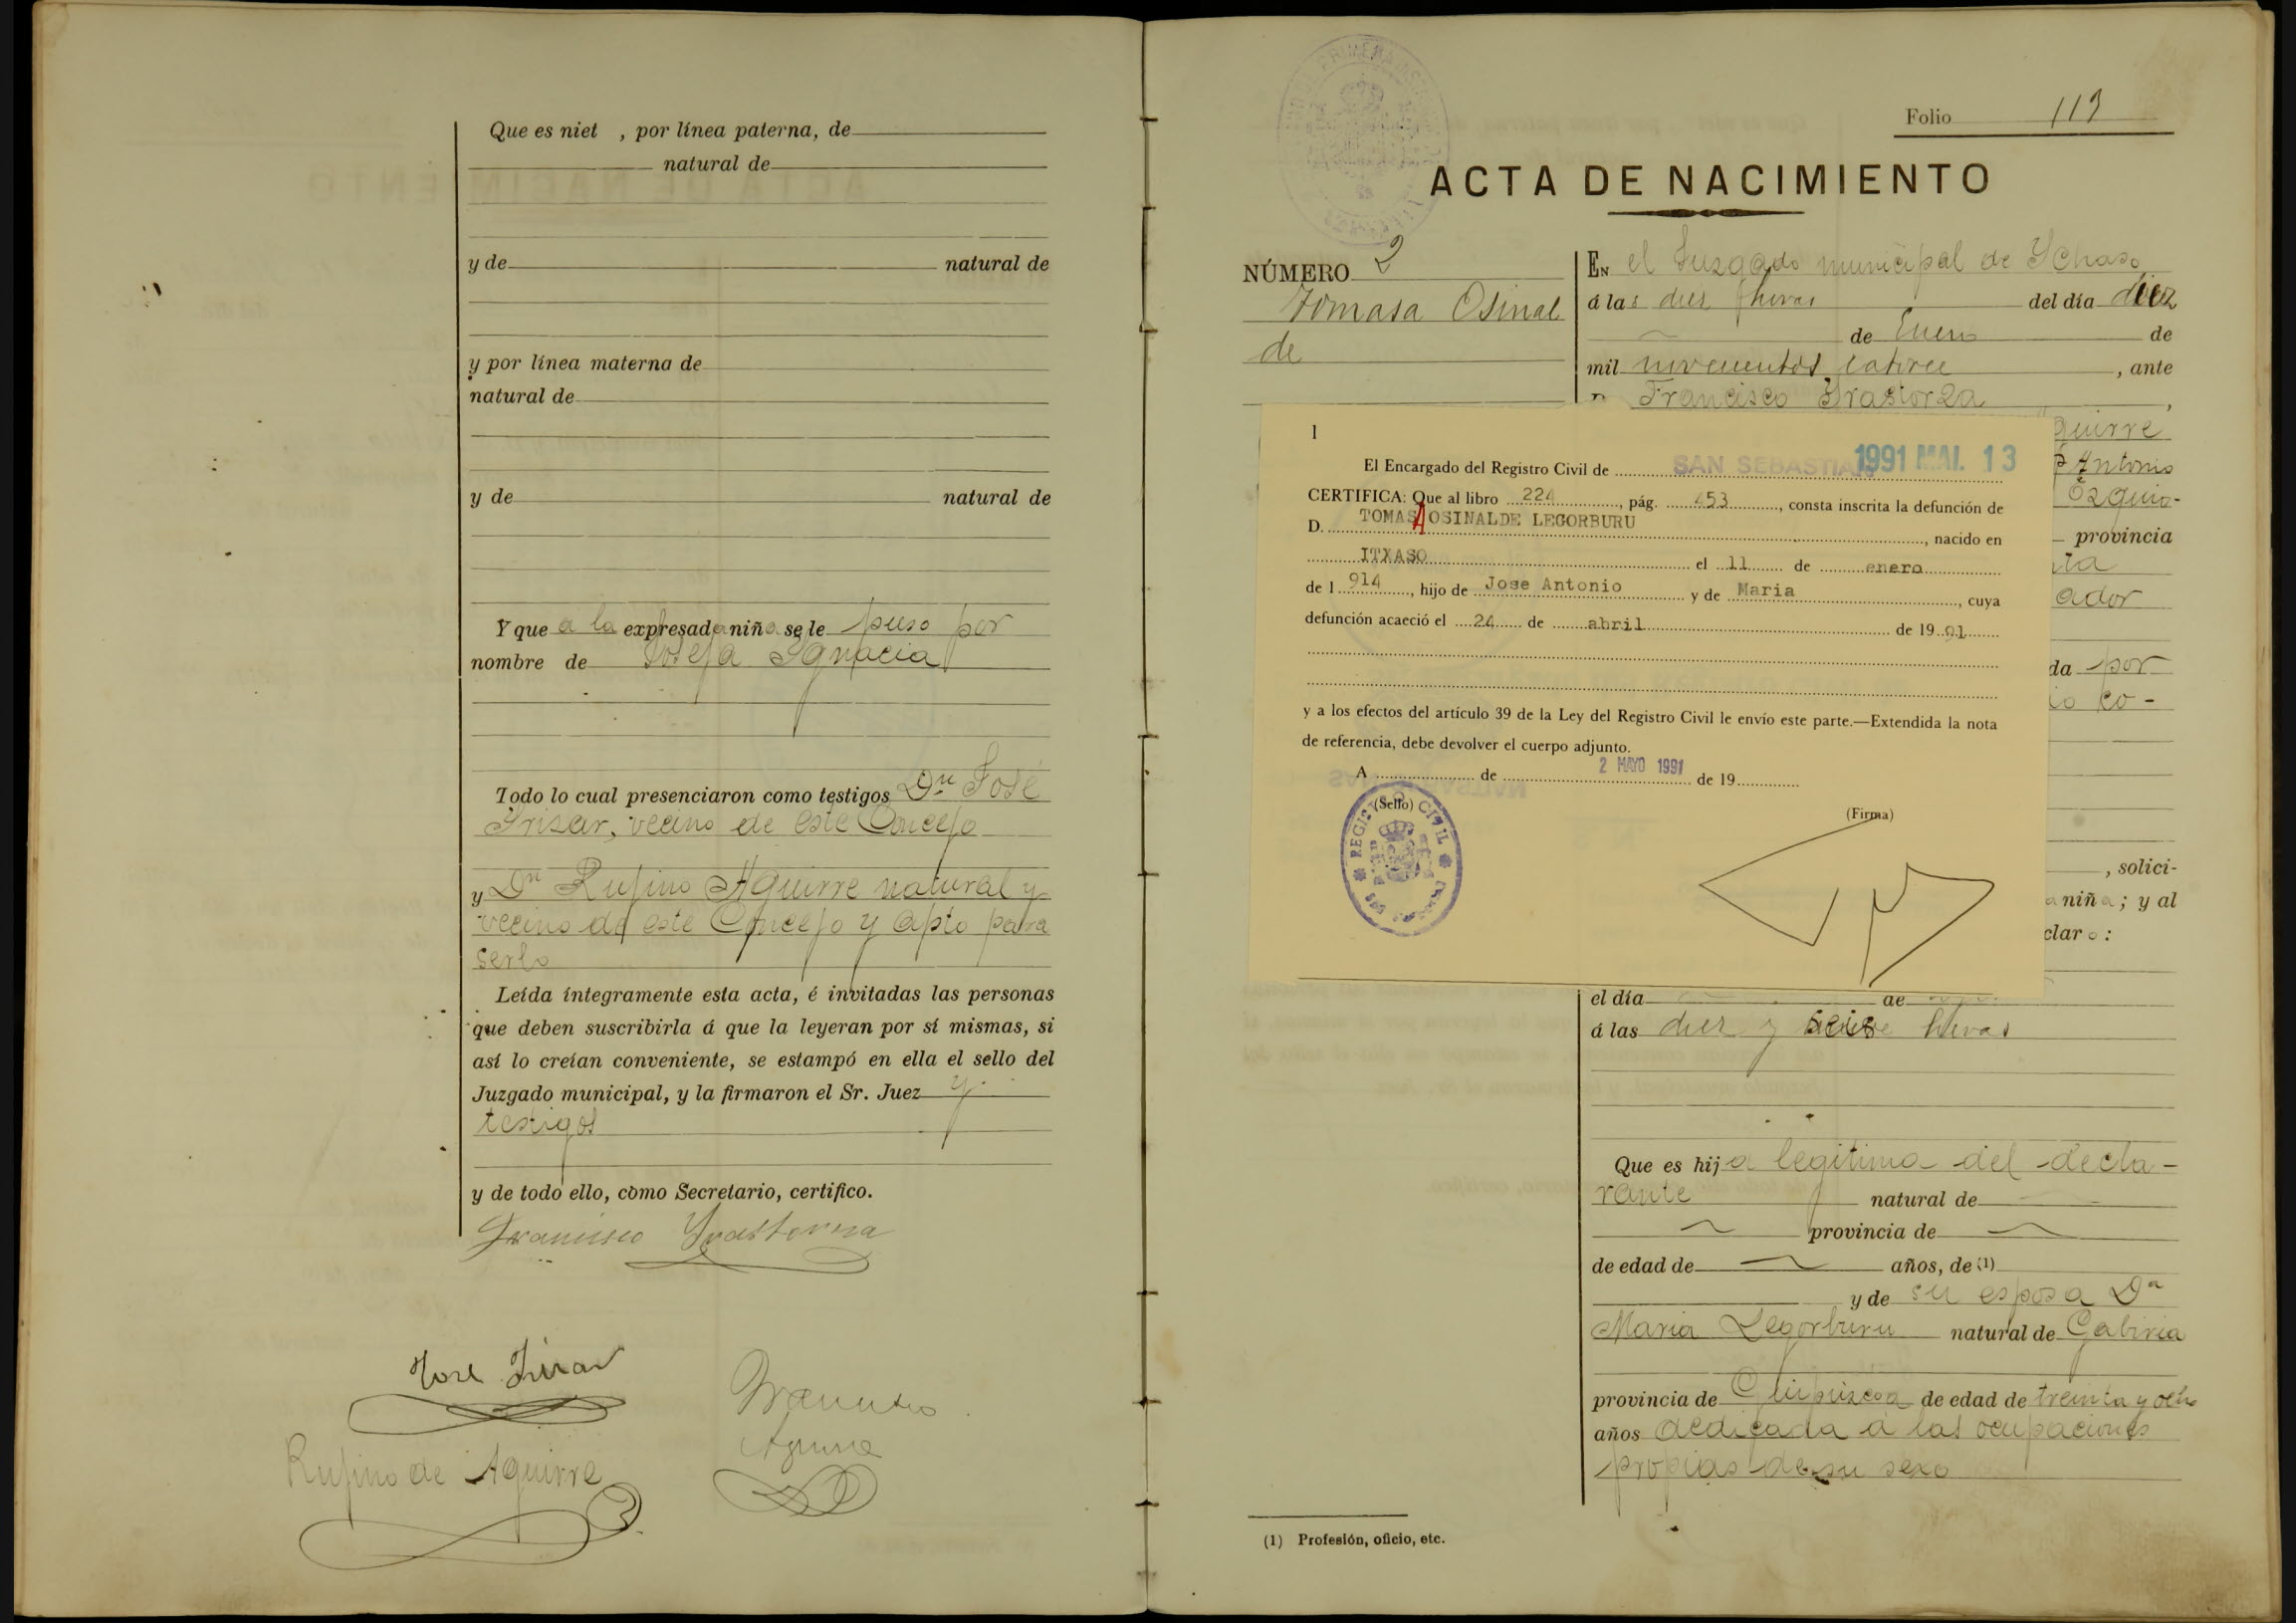 Que es niet , por línea paterna, de
natural de
y de natural de
y por línea materna de
natural de
y de natural de
Y que a la expresada niña se le puso por
nombre de Josefa Ignacia
Todo lo cual presenciaron como testigos Dn José
Irizar, vecino de este Concejo
y Dn Rufino Aguirre natural y
vecino de este Concejo y apto para
serlo
Leída íntegramente esta acta, é invitadas las personas
que deben suscribirla á que la leyeran por sí mismas, si
así lo creían conveniente, se estampó en ella el sello del
Juzgado municipal, y la firmaron el Sr. Juez y
testigos
y de todo ello, como Secretario, certifico.
Francisco Yrastorza
José Irizar
Aguirre
Rufino de Aguirre
Folio 119
ACTA DE NACIMIENTO
NÚMERO 2
Tomasa Osinal
de
EN el Juzgado municipal de Ychaso
á las diez horas del día diez
de Enero de
mil novecientos catorce , ante
Francisco Yrastorza ,
guirre
Antonio
Ezquio-
provincia
ta
ador
da por
io co-
, solici-
a niña; y al
claro:
1
El Encargado del Registro Civil de SAN SEBASTIAN 1991 MAI. 13
CERTIFICA: Que al libro 224, pág. 453, consta inscrita la defunción de
D. TOMASA OSINALDE LEGORBURU, nacido en
ITXASO el 11 de enero
de 1914, hijo de Jose Antonio y de Maria, cuya
defunción acaeció el 24 de abril de 1991
y a los efectos del artículo 39 de la Ley del Registro Civil le envío este parte.—Extendida la nota
de referencia, debe devolver el cuerpo adjunto.
A de 2 MAYO 1991 de 19
(Sello)
REGISTRO CIVIL
(Firma)
el día de
á las diez y horas
Que es hija legítima del decla-
rante natural de
provincia de
de edad de años, de (1)
y de su esposa Da
Maria Legorburu natural de Gabiria
provincia de Guipúzcoa de edad de treinta y ocho
años dedicada á las ocupaciones
propias de su sexo
(1) Profesión, oficio, etc.